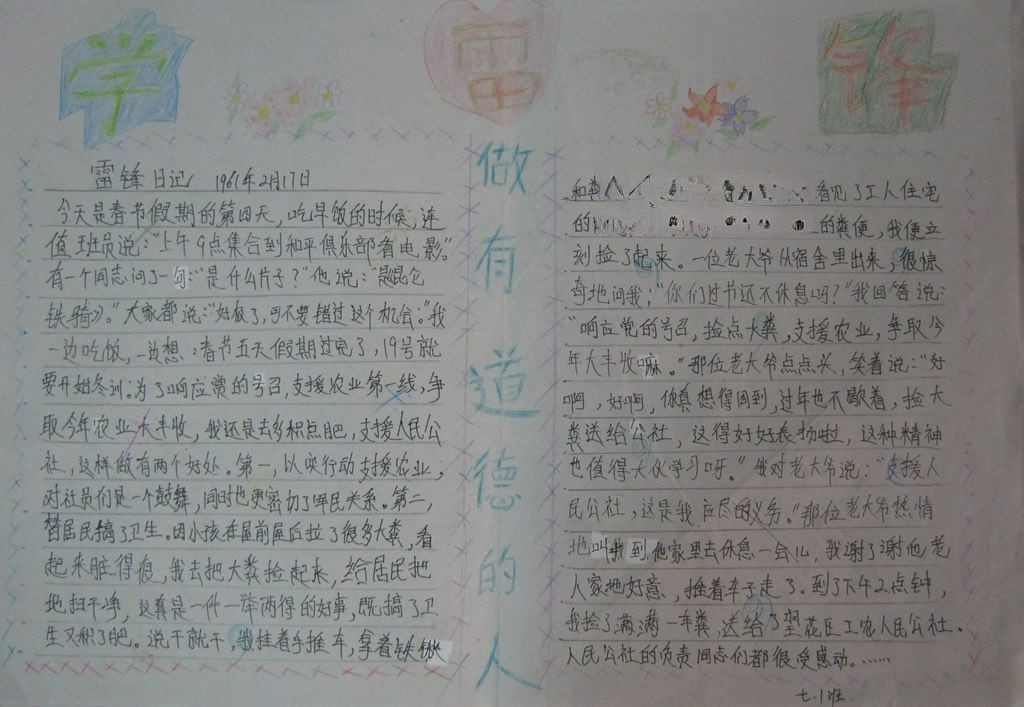 学 雷 锋
做有道德的人
雷锋日记 1961年2月17日
今天是春节假期的第四天，吃早饭的时候，连
值班员说："上午9点集合到和平俱乐部看电影。"
有一个同志问了一句："是什么片子？"他说："是昆仑
铁骑》。"大家都说："好极了，可不要错过这个机会。"我
一边吃饭，一边想：春节五天假期过完了，19号就
要开始冬训。为了响应党的号召，支援农业第一线，争
取今年农业大丰收，我还是去多积点肥，支援人民公
社，这样做有两个好处。第一，以实行动支援农业，
对社员们是一个鼓舞，同时也更密切了军民关系。第二，
替居民搞了卫生。因小孩在屋前屋后拉了很多大粪，看
起来脏得很，我去把大粪捡起来，给居民把
地扫干净，这真是一件一举两得的好事，既搞了卫
生又积了肥。说干就干，我推着手推车，拿着铁锹
和粪 看见了工人住宅
的 的粪便，我便立
刻捡了起来。一位老大爷从宿舍里出来，很惊
奇地问我："你们过节还不休息吗？"我回答说：
"响应党的号召，捡点大粪，支援农业，争取今
年大丰收嘛。"那位老大爷点点头，笑着说："好
啊，好啊，你真想得周到，过年也不歇着，捡大
粪送给公社，这得好好表扬啦，这种精神
也值得大伙学习呀。"我对老大爷说："支援人
民公社，这是我应尽的义务。"那位老大爷热情
地叫我到他家里去休息一会儿，我谢了谢他老
人家地好意，推着车子走了。到了下午2点钟，
我捡了满满一车粪，送给了望花区工农人民公社。
人民公社的负责同志们都很受感动。……
七.1班